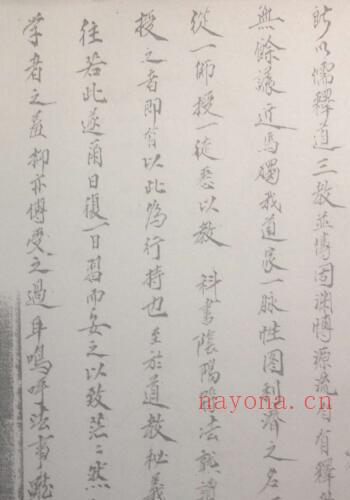 所以儒釋道三教並傳固淵博源流自有釋
無餘議近焉獨我道家一脉性圖利濟之名
從一師授一徒悉以教 科書陰陽 法就
授之者即有以此為行持也至於道教秘義
往若此遂爾日復一日習而安之以致茫茫然
学者之羞抑亦傳受之過耳嗚呼法事
nayona.cn